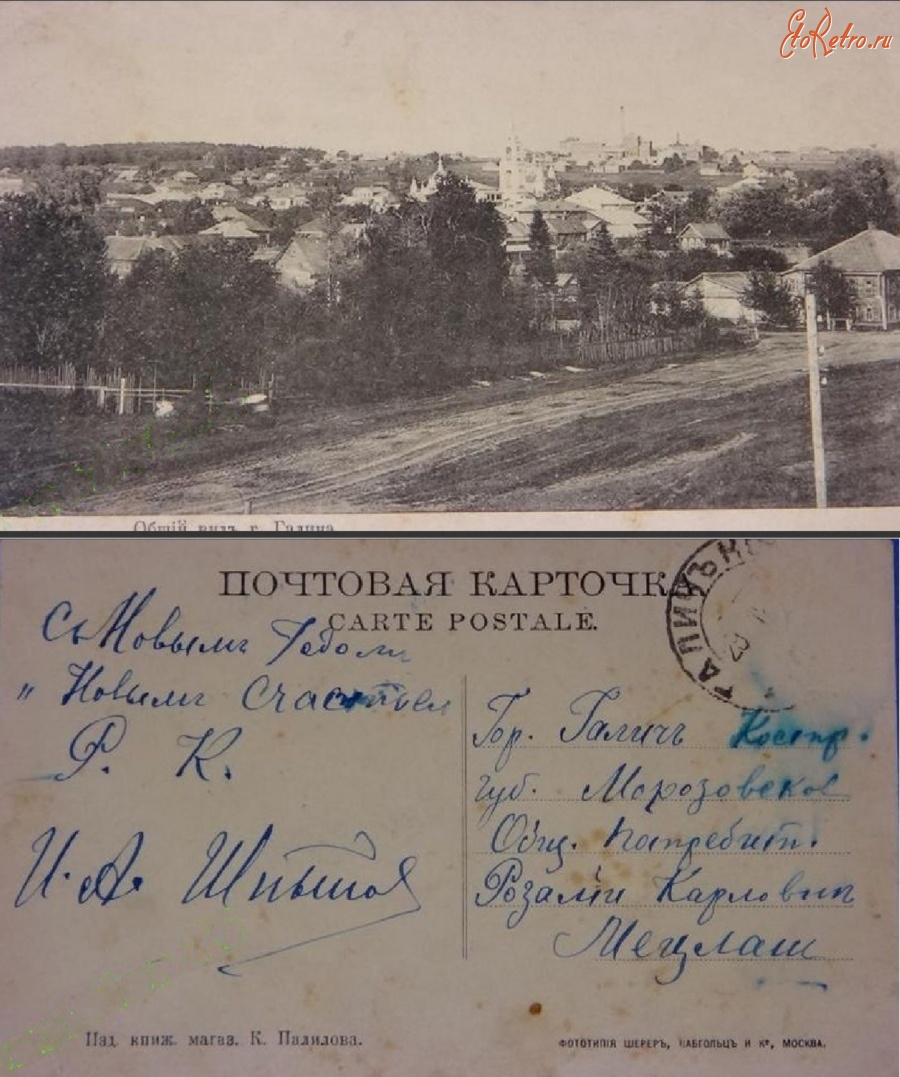 EtoRetro.ru
Общій видъ г. Галича
ПОЧТОВАЯ КАРТОЧКА
CARTE POSTALE.
ГАЛИЧЪ
Съ Новымъ Годомъ
" Новымъ Счастьем
Р. К.
И. А.
Гор. Галичъ Костр.
губ. Морозовское
Общ. Потребит.
Розаліи Карловнѣ
Мецлаш
Изд. книж. магаз. К. Палилова.
ФОТОТИПІЯ ШЕРЕРЪ, НАБГОЛЬЦЪ И Кº, МОСКВА.